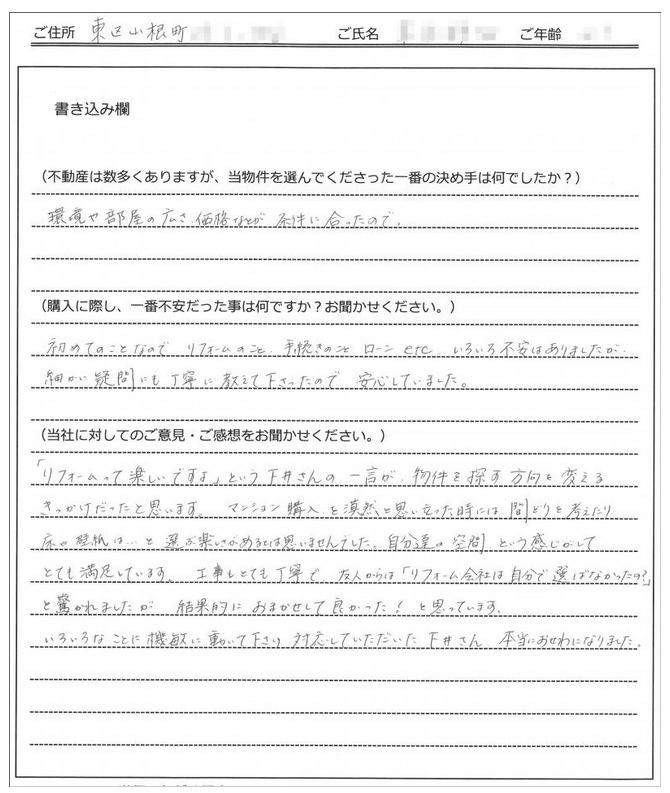 ご住所 東区山根町 ご氏名 ご年齢
書き込み欄
(不動産は数多くありますが、当物件を選んでくださった一番の決め手は何でしたか？)
環境や部屋の広さ、価格などが 条件に合ったので。
(購入に際し、一番不安だった事は何ですか？お聞かせください。)
初めてのことなので リフォームのこと、手続きのこと ローン etc いろいろ不安はありましたが、
細かい疑問にも丁寧に教えて下さったので 安心していました。
(当社に対してのご意見・ご感想をお聞かせください。)
「リフォームって楽しいですよ」という下井さんの一言が、物件を探す方向を変える
きっかけだったと思います。 マンション購入を漠然と思い立った時には 間どりを考えたり
床や壁紙は…と選ぶ楽しさがあるとは思いませんでした。自分達の空間という感じがして
とても満足しています。 工事もとても丁寧で、友人からは「リフォーム会社は自分で選ばなかったの?」
と驚かれましたが 結果的に おまかせして良かった！と思っています。
いろいろなことに機敏に動いて下さり 対応していただいた下井さん 本当におせわになりました。